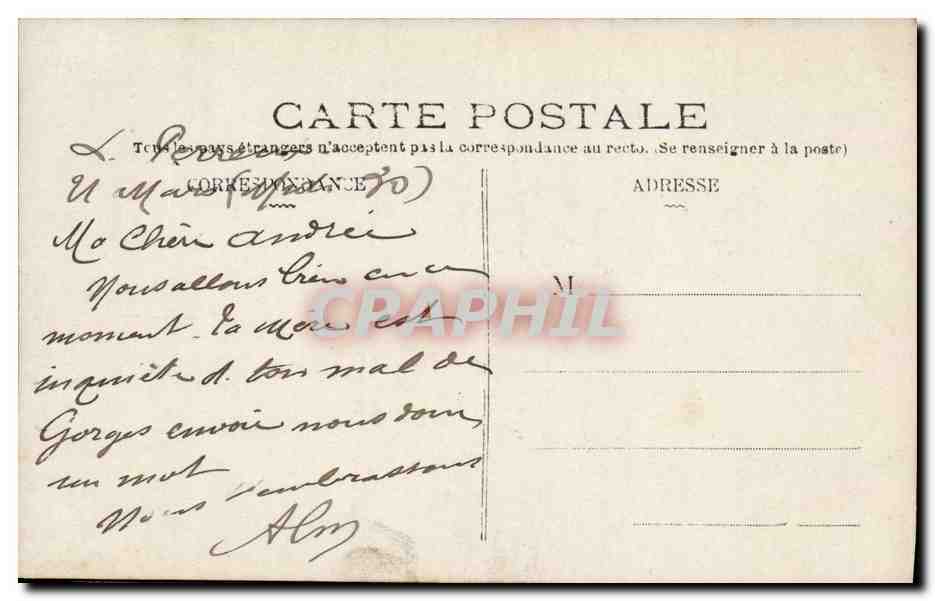 CARTE POSTALE
Tous les pays étrangers n'acceptent pas la correspondance au recto. (Se renseigner à la poste)
L. Perreux
CORRESPONDANCE
ADRESSE
11 Mars (Midi 30)
Ma Chère andrée
Nous allons bien en ce
M
moment. Ta Mère est
CPAPHIL
inquiète d. ton mal de
Gorges envoie nous donc
un mot
Nous t'embrassons